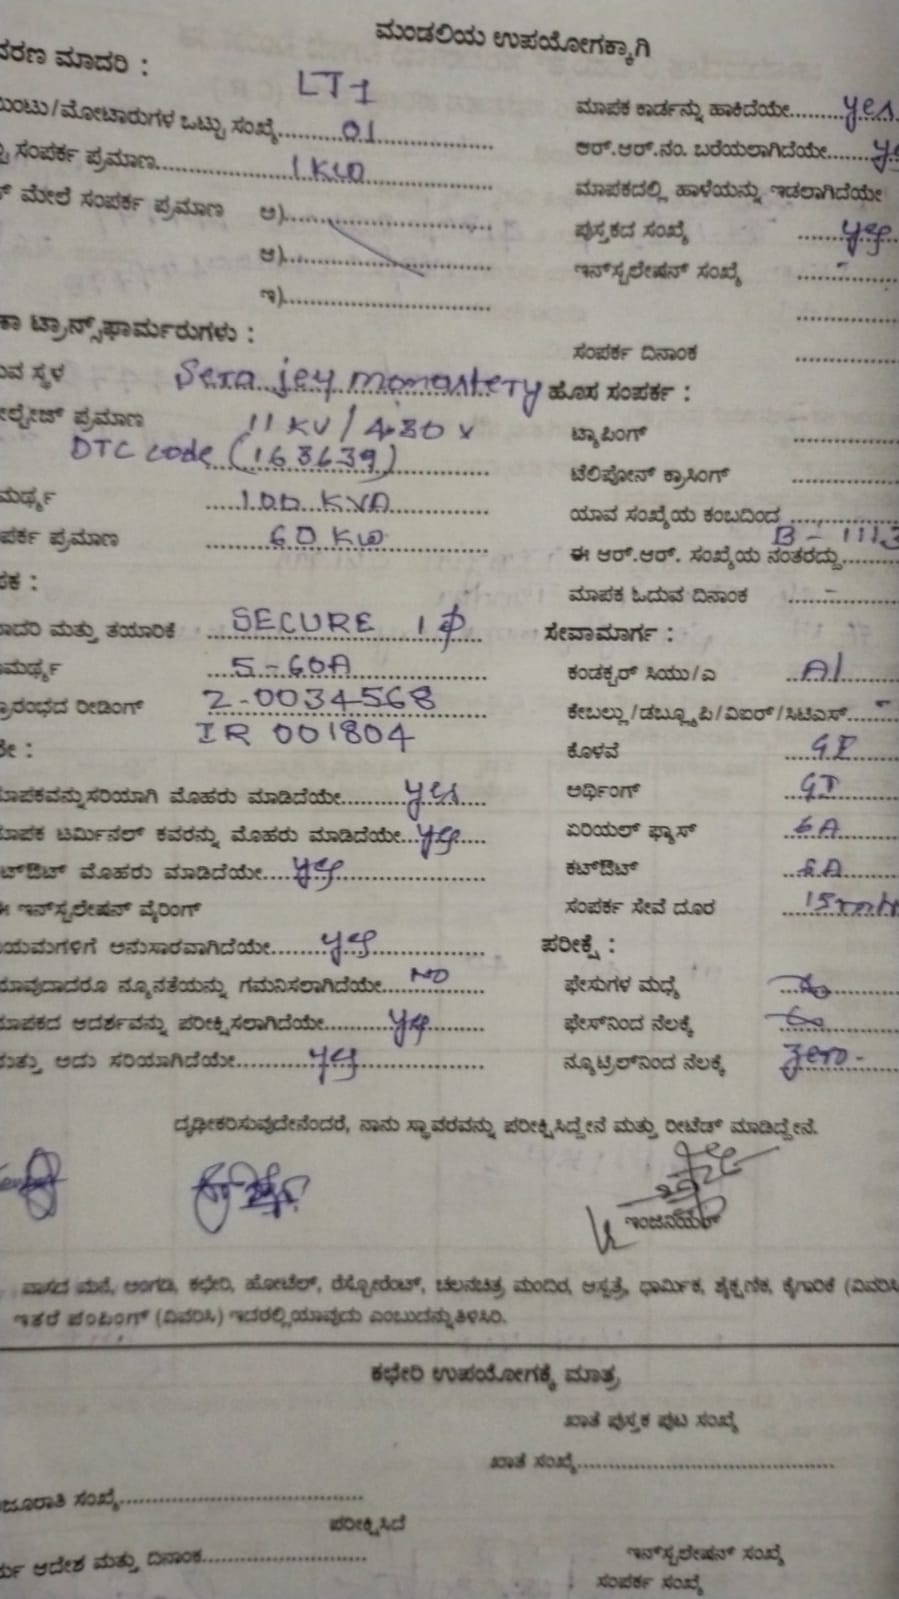 ಮಂಡಲಿಯ ಉಪಯೋಗಕ್ಕಾಗಿ
ಮಾದರಿ :
LT1
/ಮೋಟಾರುಗಳ ಒಟ್ಟು ಸಂಖ್ಯೆ......01
ಸಂಪರ್ಕ ಪ್ರಮಾಣ......1 KW
ಮೇಲೆ ಸಂಪರ್ಕ ಪ್ರಮಾಣ ಅ)......
ಆ)......
ಇ)......
ಟ್ರಾನ್ಸ್‌ಫಾರ್ಮರುಗಳು :
ಸ್ಥಳ Sera jey monastery
ಪ್ರಮಾಣ 11 KV /
DTC code (163639)
100 KVA
ಪ್ರಮಾಣ 60 KW
ಮತ್ತು ತಯಾರಿಕೆ SECURE 1 ф
5-60A
ರೀಡಿಂಗ್ 2-0034568
IR 001804
ಸರಿಯಾಗಿ ಮೊಹರು ಮಾಡಿದೆಯೇ......yes
ಟರ್ಮಿನಲ್ ಕವರನ್ನು ಮೊಹರು ಮಾಡಿದೆಯೇ...yes
ಮೊಹರು ಮಾಡಿದೆಯೇ....yes
ಇನ್‌ಸ್ಟಲೇಷನ್ ವೈರಿಂಗ್
ಅನುಸಾರವಾಗಿದೆಯೇ......yes
ನ್ಯೂನತೆಯನ್ನು ಗಮನಿಸಲಾಗಿದೆಯೇ...NO
ಆದರ್ಶವನ್ನು ಪರೀಕ್ಷಿಸಲಾಗಿದೆಯೇ......yes
ಅದು ಸರಿಯಾಗಿದೆಯೇ......yes
ಮಾಪಕ ಕಾರ್ಡನ್ನು ಹಾಕಿದೆಯೇ......yes
ಆರ್.ಆರ್.ನಂ. ಬರೆಯಲಾಗಿದೆಯೇ......
ಮಾಪಕದಲ್ಲಿ ಹಾಳೆಯನ್ನು ಇಡಲಾಗಿದೆಯೇ
ಪುಸ್ತಕದ ಸಂಖ್ಯೆ ......yes
ಇನ್‌ಸ್ಟಲೇಷನ್ ಸಂಖ್ಯೆ ......
ಸಂಪರ್ಕ ದಿನಾಂಕ ......
ಹೊಸ ಸಂಪರ್ಕ :
ಟ್ಯಾಪಿಂಗ್ ......
ಟೆಲಿಪೋನ್ ಕ್ರಾಸಿಂಗ್ ......
ಯಾವ ಸಂಖ್ಯೆಯ ಕಂಬದಿಂದ ......
B - 1113
ಈ ಆರ್.ಆರ್. ಸಂಖ್ಯೆಯ ನಂತರದ್ದು......
ಮಾಪಕ ಓದುವ ದಿನಾಂಕ ......
ಸೇವಾಮಾರ್ಗ :
ಕಂಡಕ್ಟರ್ ಸಿಯು/ಎ Al
ಕೇಬಲ್ಲು/ಡಬ್ಲ್ಯೂಪಿ/ವಿಐಆರ್/ಸಿಟಿಎಸ್......
ಕೊಳವೆ GI
ಅರ್ಥಿಂಗ್ GI
ಏರಿಯಲ್ ಫ್ಯೂಸ್ 6A
ಕಟ್‌ಔಟ್
ಸಂಪರ್ಕ ಸೇವೆ ದೂರ
ಪರೀಕ್ಷೆ :
ಫೇಸುಗಳ ಮಧ್ಯೆ
ಫೇಸ್‌ನಿಂದ ನೆಲಕ್ಕೆ
ನ್ಯೂಟ್ರಲ್‌ನಿಂದ ನೆಲಕ್ಕೆ zero-
ದೃಢೀಕರಿಸುವುದೇನೆಂದರೆ, ನಾನು ಸ್ಥಾವರವನ್ನು ಪರೀಕ್ಷಿಸಿದ್ದೇನೆ ಮತ್ತು ರೀಟೆಡ್ ಮಾಡಿದ್ದೇನೆ.
ಇಂಜಿನಿಯರ್
ವಾಸದ ಮನೆ, ಅಂಗಡಿ, ಕಛೇರಿ, ಹೋಟೆಲ್, ರೆಸ್ಟೋರೆಂಟ್, ಚಲನಚಿತ್ರ ಮಂದಿರ, ಆಸ್ಪತ್ರೆ, ಧಾರ್ಮಿಕ, ಶೈಕ್ಷಣಿಕ, ಕೈಗಾರಿಕೆ (ವಿವರಿಸಿ
ಇತರೆ ಪಂಪಿಂಗ್ (ವಿವರಿಸಿ) ಇದರಲ್ಲಿ ಯಾವುದು ಎಂಬುದನ್ನು ತಿಳಿಸಿರಿ.
ಕಛೇರಿ ಉಪಯೋಗಕ್ಕೆ ಮಾತ್ರ
ಖಾತೆ ಪುಸ್ತಕ ಪುಟ ಸಂಖ್ಯೆ
ಖಾತೆ ಸಂಖ್ಯೆ......
ಸಂಖ್ಯೆ......
ಪರೀಕ್ಷಿಸಿದೆ
ಆದೇಶ ಮತ್ತು ದಿನಾಂಕ......
ಇನ್‌ಸ್ಟಲೇಷನ್ ಸಂಖ್ಯೆ
ಸಂಪರ್ಕ ಸಂಖ್ಯೆ